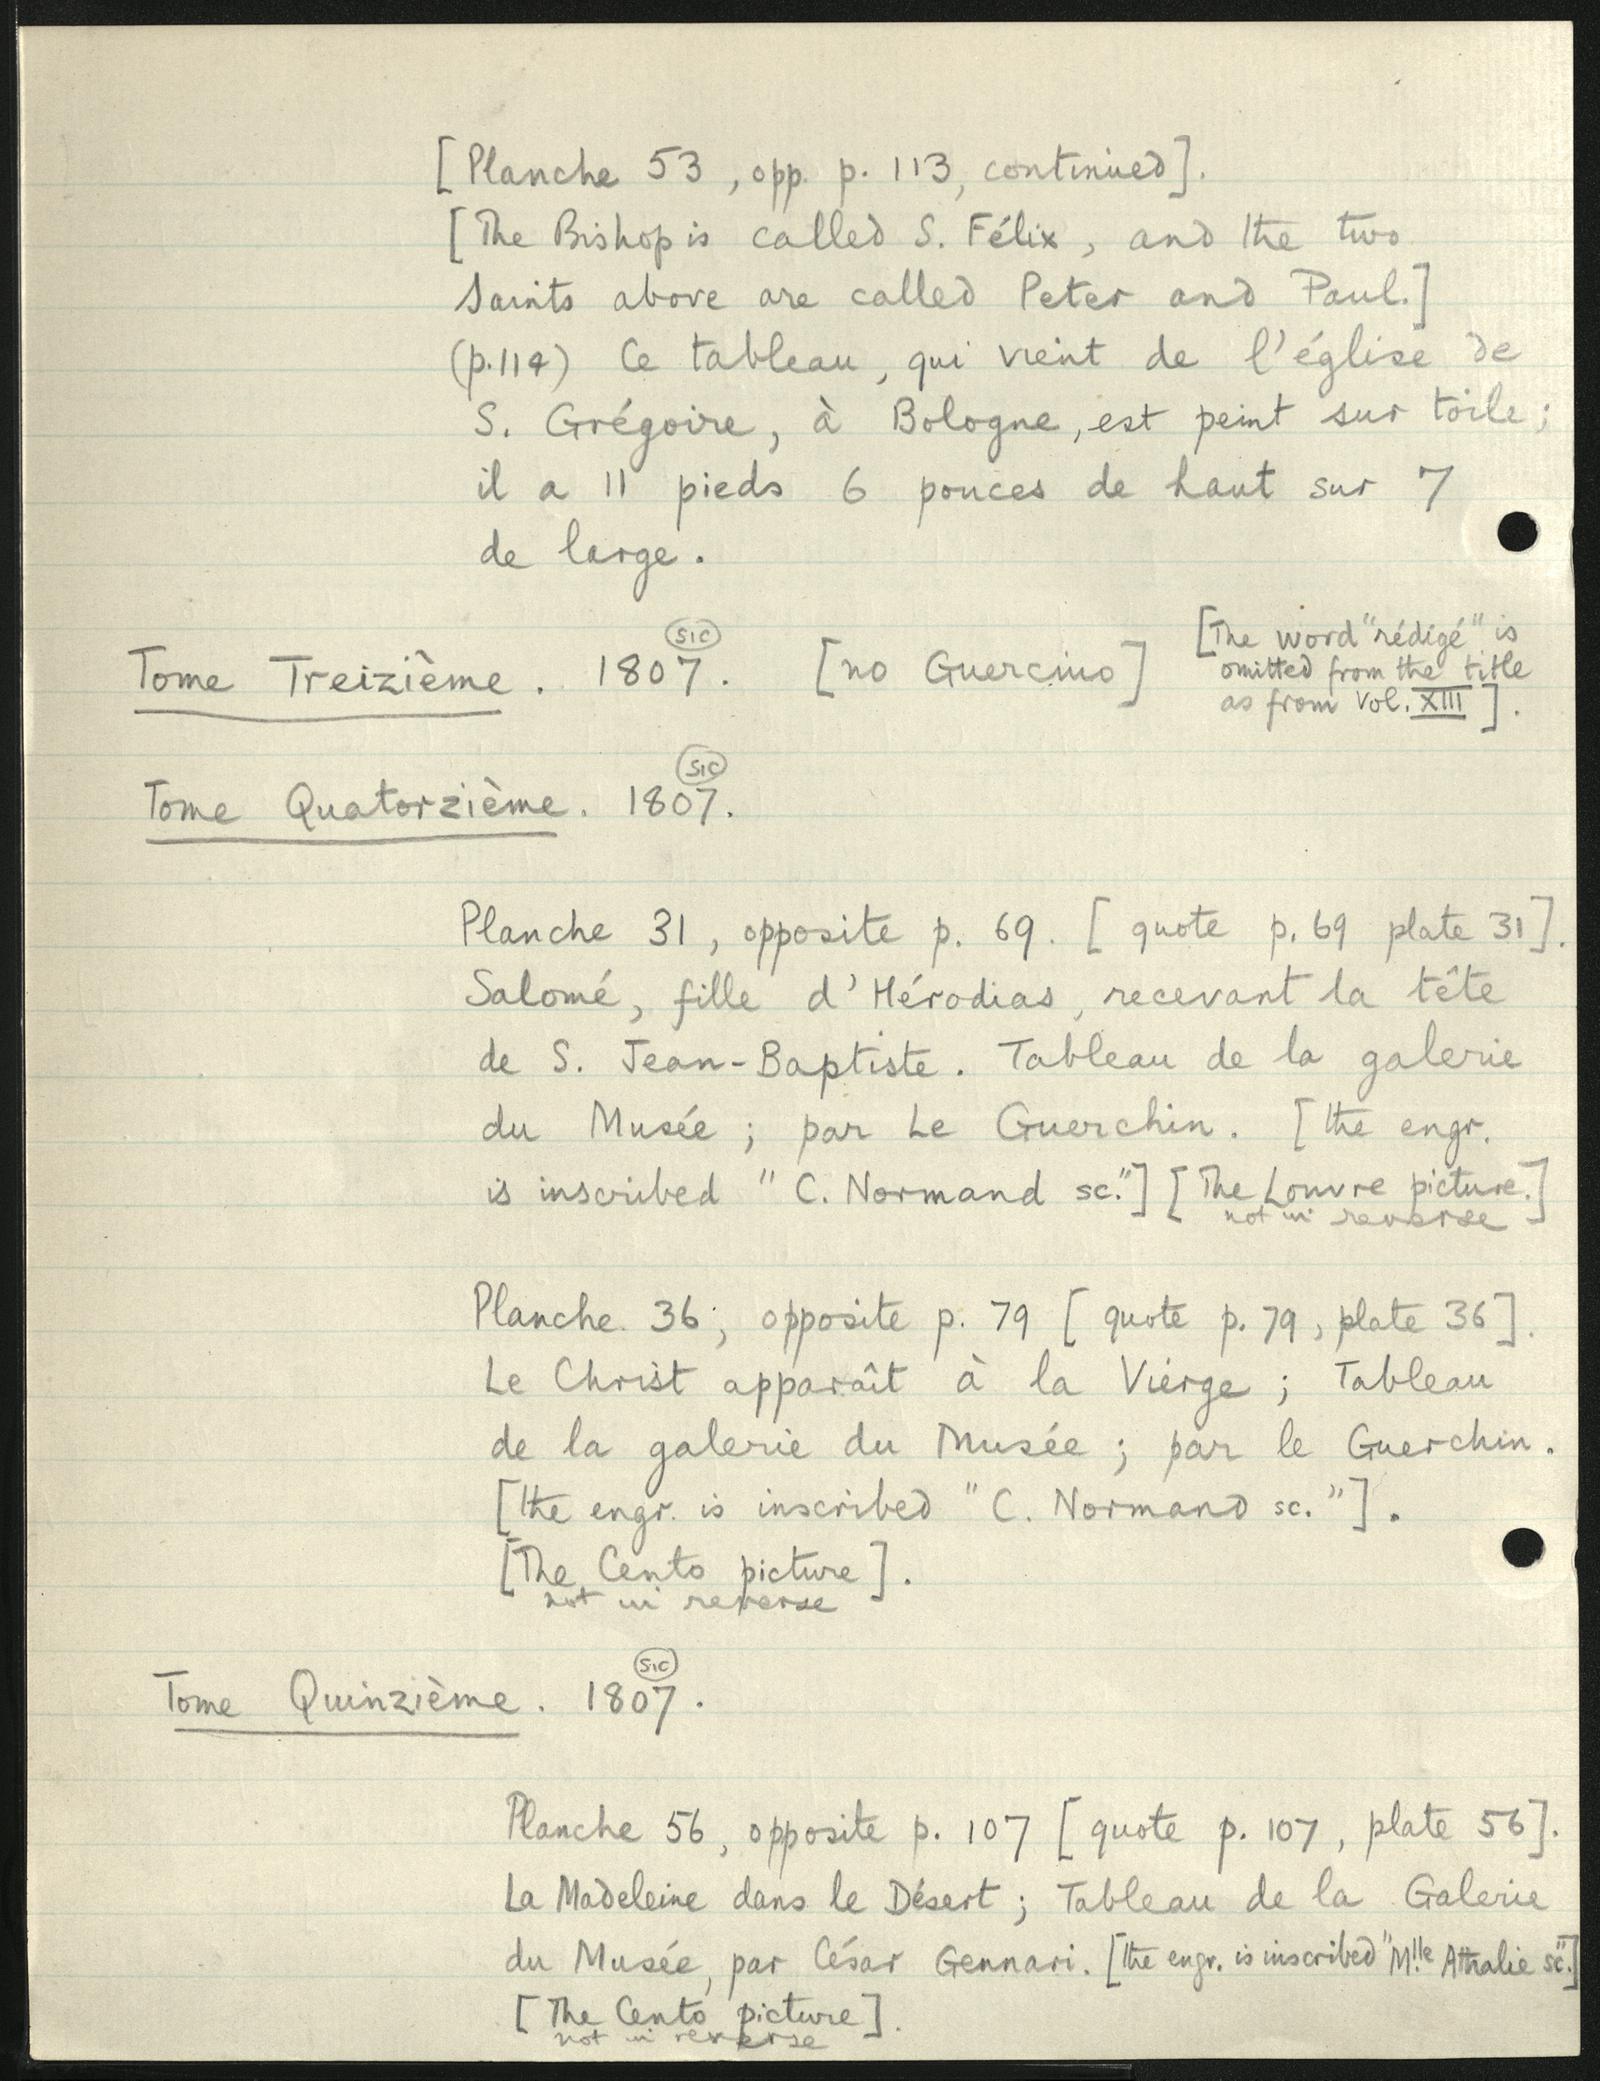 [Planche 53, opp. p. 113, continued].
[The Bishop is called S. Félix, and the two
Saints above are called Peter and Paul.]
(p.114) Ce tableau, qui vient de l'église de
S. Grégoire, à Bologne, est peint sur toile;
il a 11 pieds 6 pouces de haut sur 7
de large.
Tome Treizième. 1807. (sic) [no Guercino] [The word "rédigé" is
omitted from the title
as from Vol. XIII].
Tome Quatorzième. 1807. (sic)
Planche 31, opposite p. 69. [quote p. 69 plate 31].
Salomé, fille d'Hérodias, recevant la tête
de S. Jean-Baptiste. Tableau de la galerie
du Musée; par Le Guerchin. [the engr.
is inscribed "C. Normand sc."] [The Louvre picture.]
not in reverse
Planche 36, opposite p. 79 [quote p. 79, plate 36].
Le Christ apparaît à la Vierge; Tableau
de la galerie du Musée; par le Guerchin.
[the engr. is inscribed "C. Normand sc."].
[The Cento picture].
not in reverse
Tome Quinzième. 1807. (sic)
Planche 56, opposite p. 107 [quote p. 107, plate 56].
La Madeleine dans le Désert; Tableau de la Galerie
du Musée, par César Gennari. [the engr. is inscribed "Mlle Athalie sc."]
[The Cento picture].
not in reverse